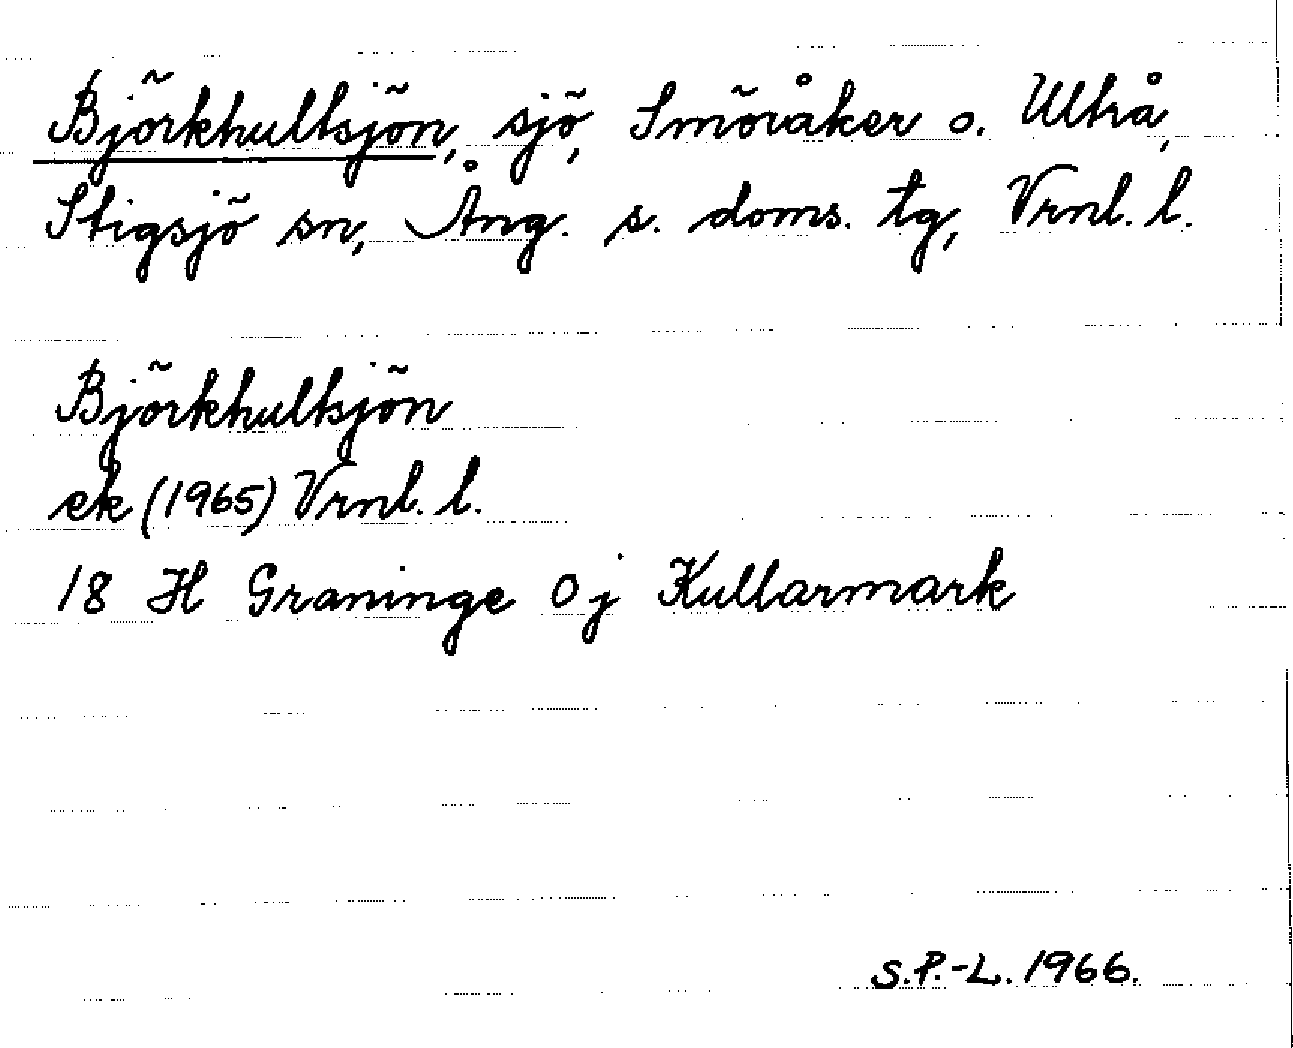 Björkhultsjön, sjö, Smöråker o. Ultrå,
Stigsjö sn, Ång. s. doms. tg, Vrnl. l.
Björkhultsjön
ek (1965) Vrnl. l.
18 H Graninge 0 j Kullarmark
S.P.-L. 1966.